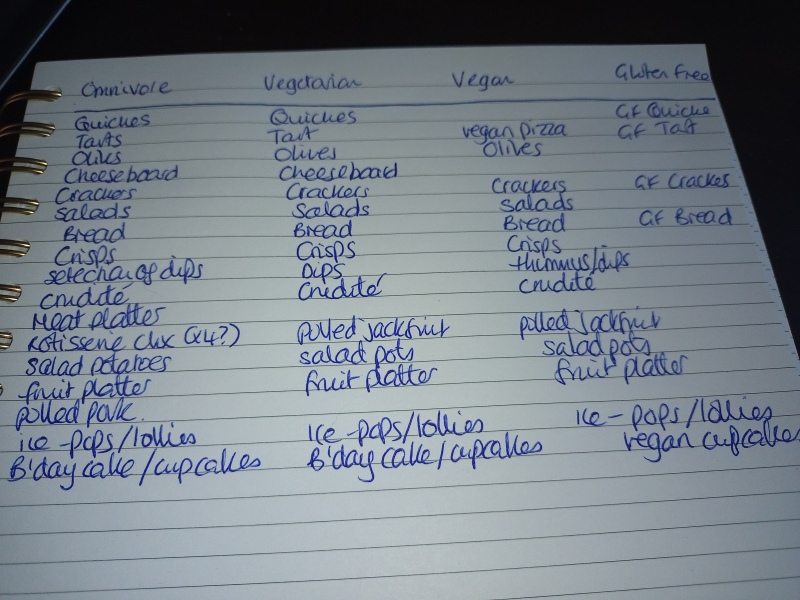 Omnivore Vegetarian Vegan Gluten Free
Quiches Quiches GF Quiche
Tarts Tart vegan pizza GF Tart
Olives Olives Olives
Cheeseboard Cheeseboard
Crackers Crackers Crackers GF Crackers
Salads Salads Salads
Bread Bread Bread GF Bread
Crisps Crisps Crisps
selection of dips Dips Hummus/dips
crudité Crudité crudité
Meat platter
Rotisserie chx (x4?) pulled jackfruit pulled jackfruit
salad potatoes salad pots salad pots
fruit platter fruit platter fruit platter
pulled pork.
ice-pops/lollies Ice-pops/lollies Ice-pops/lollies
B'day cake/cupcakes B'day cake/cupcakes vegan cupcakes